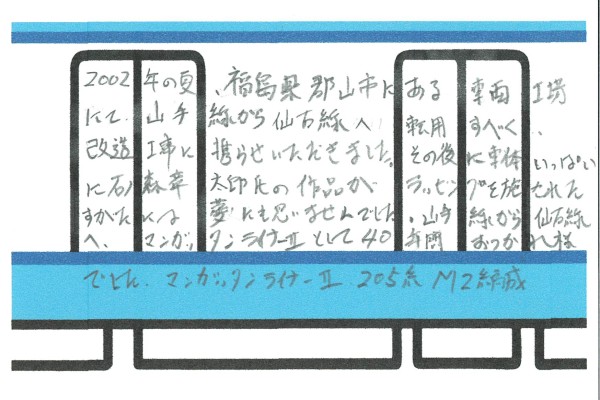 2002年の夏、福島県郡山市にある車両工場
にて、山手線から仙石線へ転用すべく、
改造工事に携らせいただきました。その後に車体いっぱい
に石ノ森章太郎氏の作品がラッピングを施された
すがたには夢にも思いませんでした。山手線から仙石線
へ、マンガッタンライナーⅡとして40年間おつかれ様
でした。マンガッタンライナーⅡ 205系 M2編成